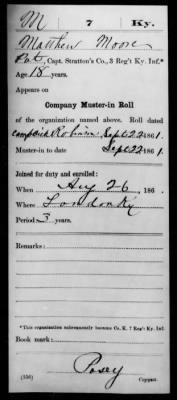 M 7 Ky.
Matthew Moore
Pvt, Capt. Stratton's Co., 3 Reg't Ky. Inf.*
Age 18 years.
Appears on
Company Muster-in Roll
of the organization named above. Roll dated
Camp Dick Robinson Sept 22, 1861.
Muster-in to date Sept 22, 1861.
Joined for duty and enrolled:
When Aug 26, 186 .
Where London Ky
Period 3 years.
Remarks:
*This organization subsequently became Co. K, 7 Reg't Ky. Inf.
Book mark:
Posey
(356) Copyist.